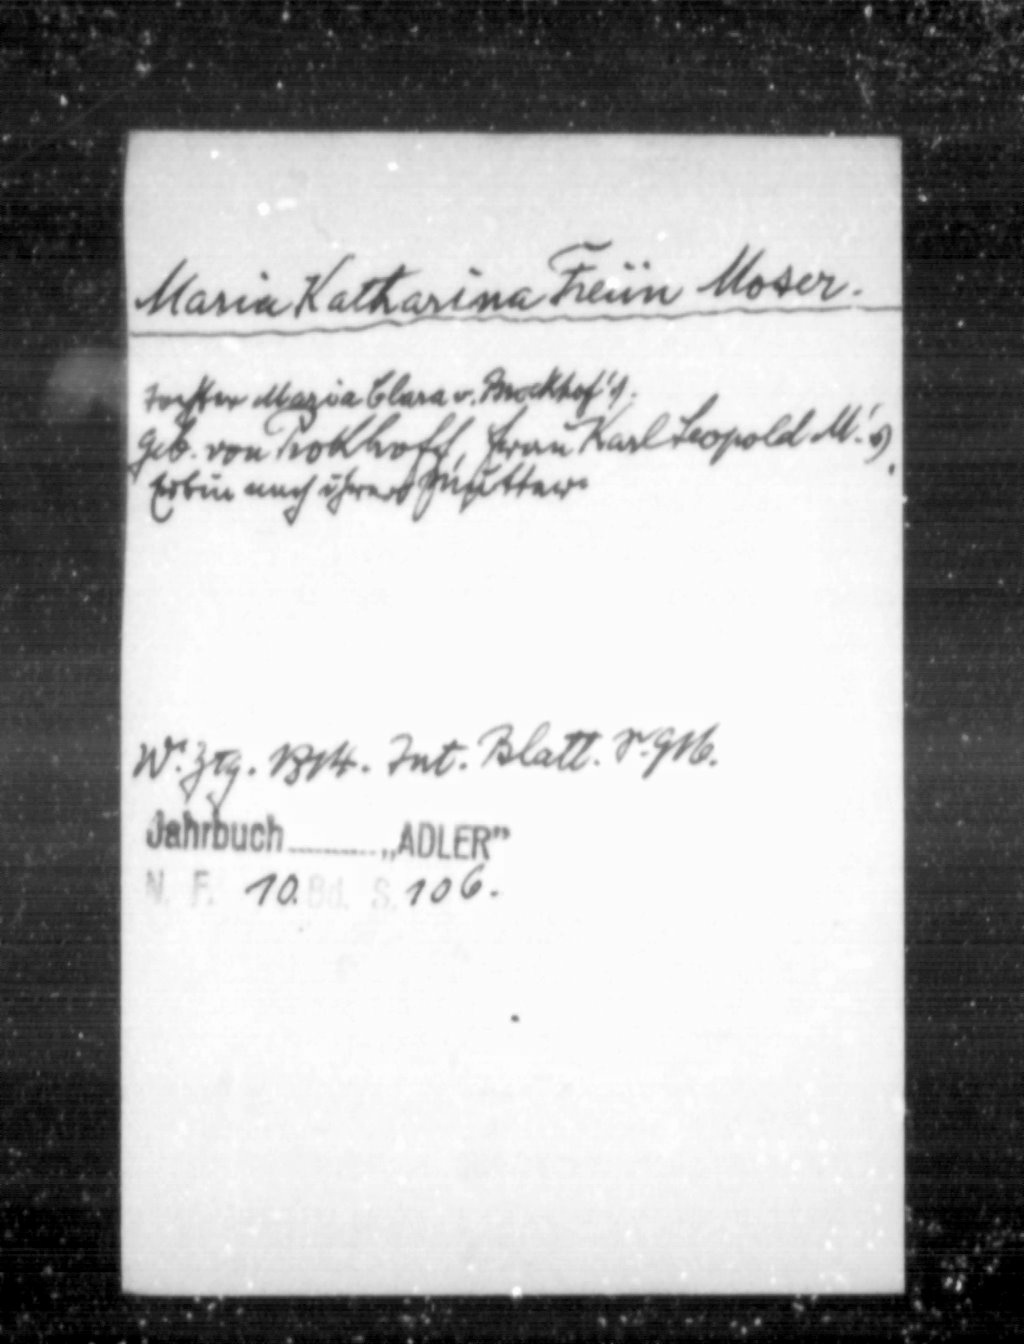 Maria Katharina Freiin Moser.
Tochter Maria Clara v. Brockhof's.
geb. von Prokhoff, Frau Karl Leopold M's,
Erbin nach ihrer Mutter.
W. Ztg. Int. Blatt. S. 916.
Jahrbuch ............ „ADLER”
N. F. 10. Bd. S. 106.